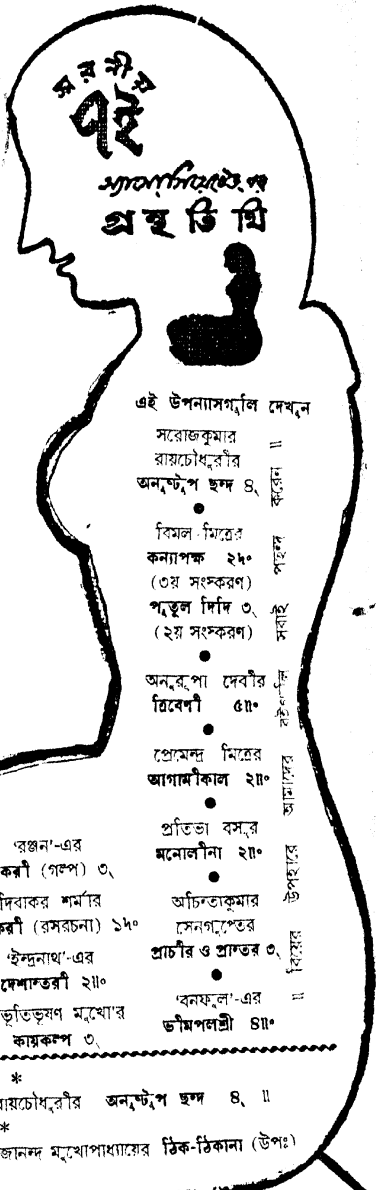 স্মরণীয়
৭ই
অ্যাসোসিয়েটেড-এর
গ্রন্থতিথি
এই উপন্যাসগুলি দেখুন
সরোজকুমার
রায়চৌধুরীর
অনুষ্টুপ ছন্দ ৪৲
বিমল মিত্রের
কন্যাপক্ষ ২৸৹
(৩য় সংস্করণ)
পুতুল দিদি ৩৲
(২য় সংস্করণ)
অনুরূপা দেবীর
ত্রিবেণী ৫॥৹
প্রেমেন্দ্র মিত্রের
আগামীকাল ২॥৹
প্রতিভা বসুর
মনোলীনা ২॥৹
অচিন্ত্যকুমার
সেনগুপ্তের
প্রাচীর ও প্রান্তর ৩৲
'বনফুল'-এর
ভীমপলশ্রী ৪॥৹
॥ বিয়ের উপহারে আমাদের বইগুলি সবাই পছন্দ করেন ॥
'রঞ্জন'-এর
করী (গল্প) ৩৲
দিবাকর শর্মার
করী (রসরচনা) ১৸৹
'ইন্দ্রনাথ'-এর
দেশান্তরী ২॥৹
ভূতিভূষণ মুখো'র
কায়কল্প ৩৲
*
রায়চৌধুরীর অনুষ্টুপ ছন্দ ৪৲ ॥
*
জানন্দ মুখোপাধ্যায়ের ঠিক-ঠিকানা (উপঃ)